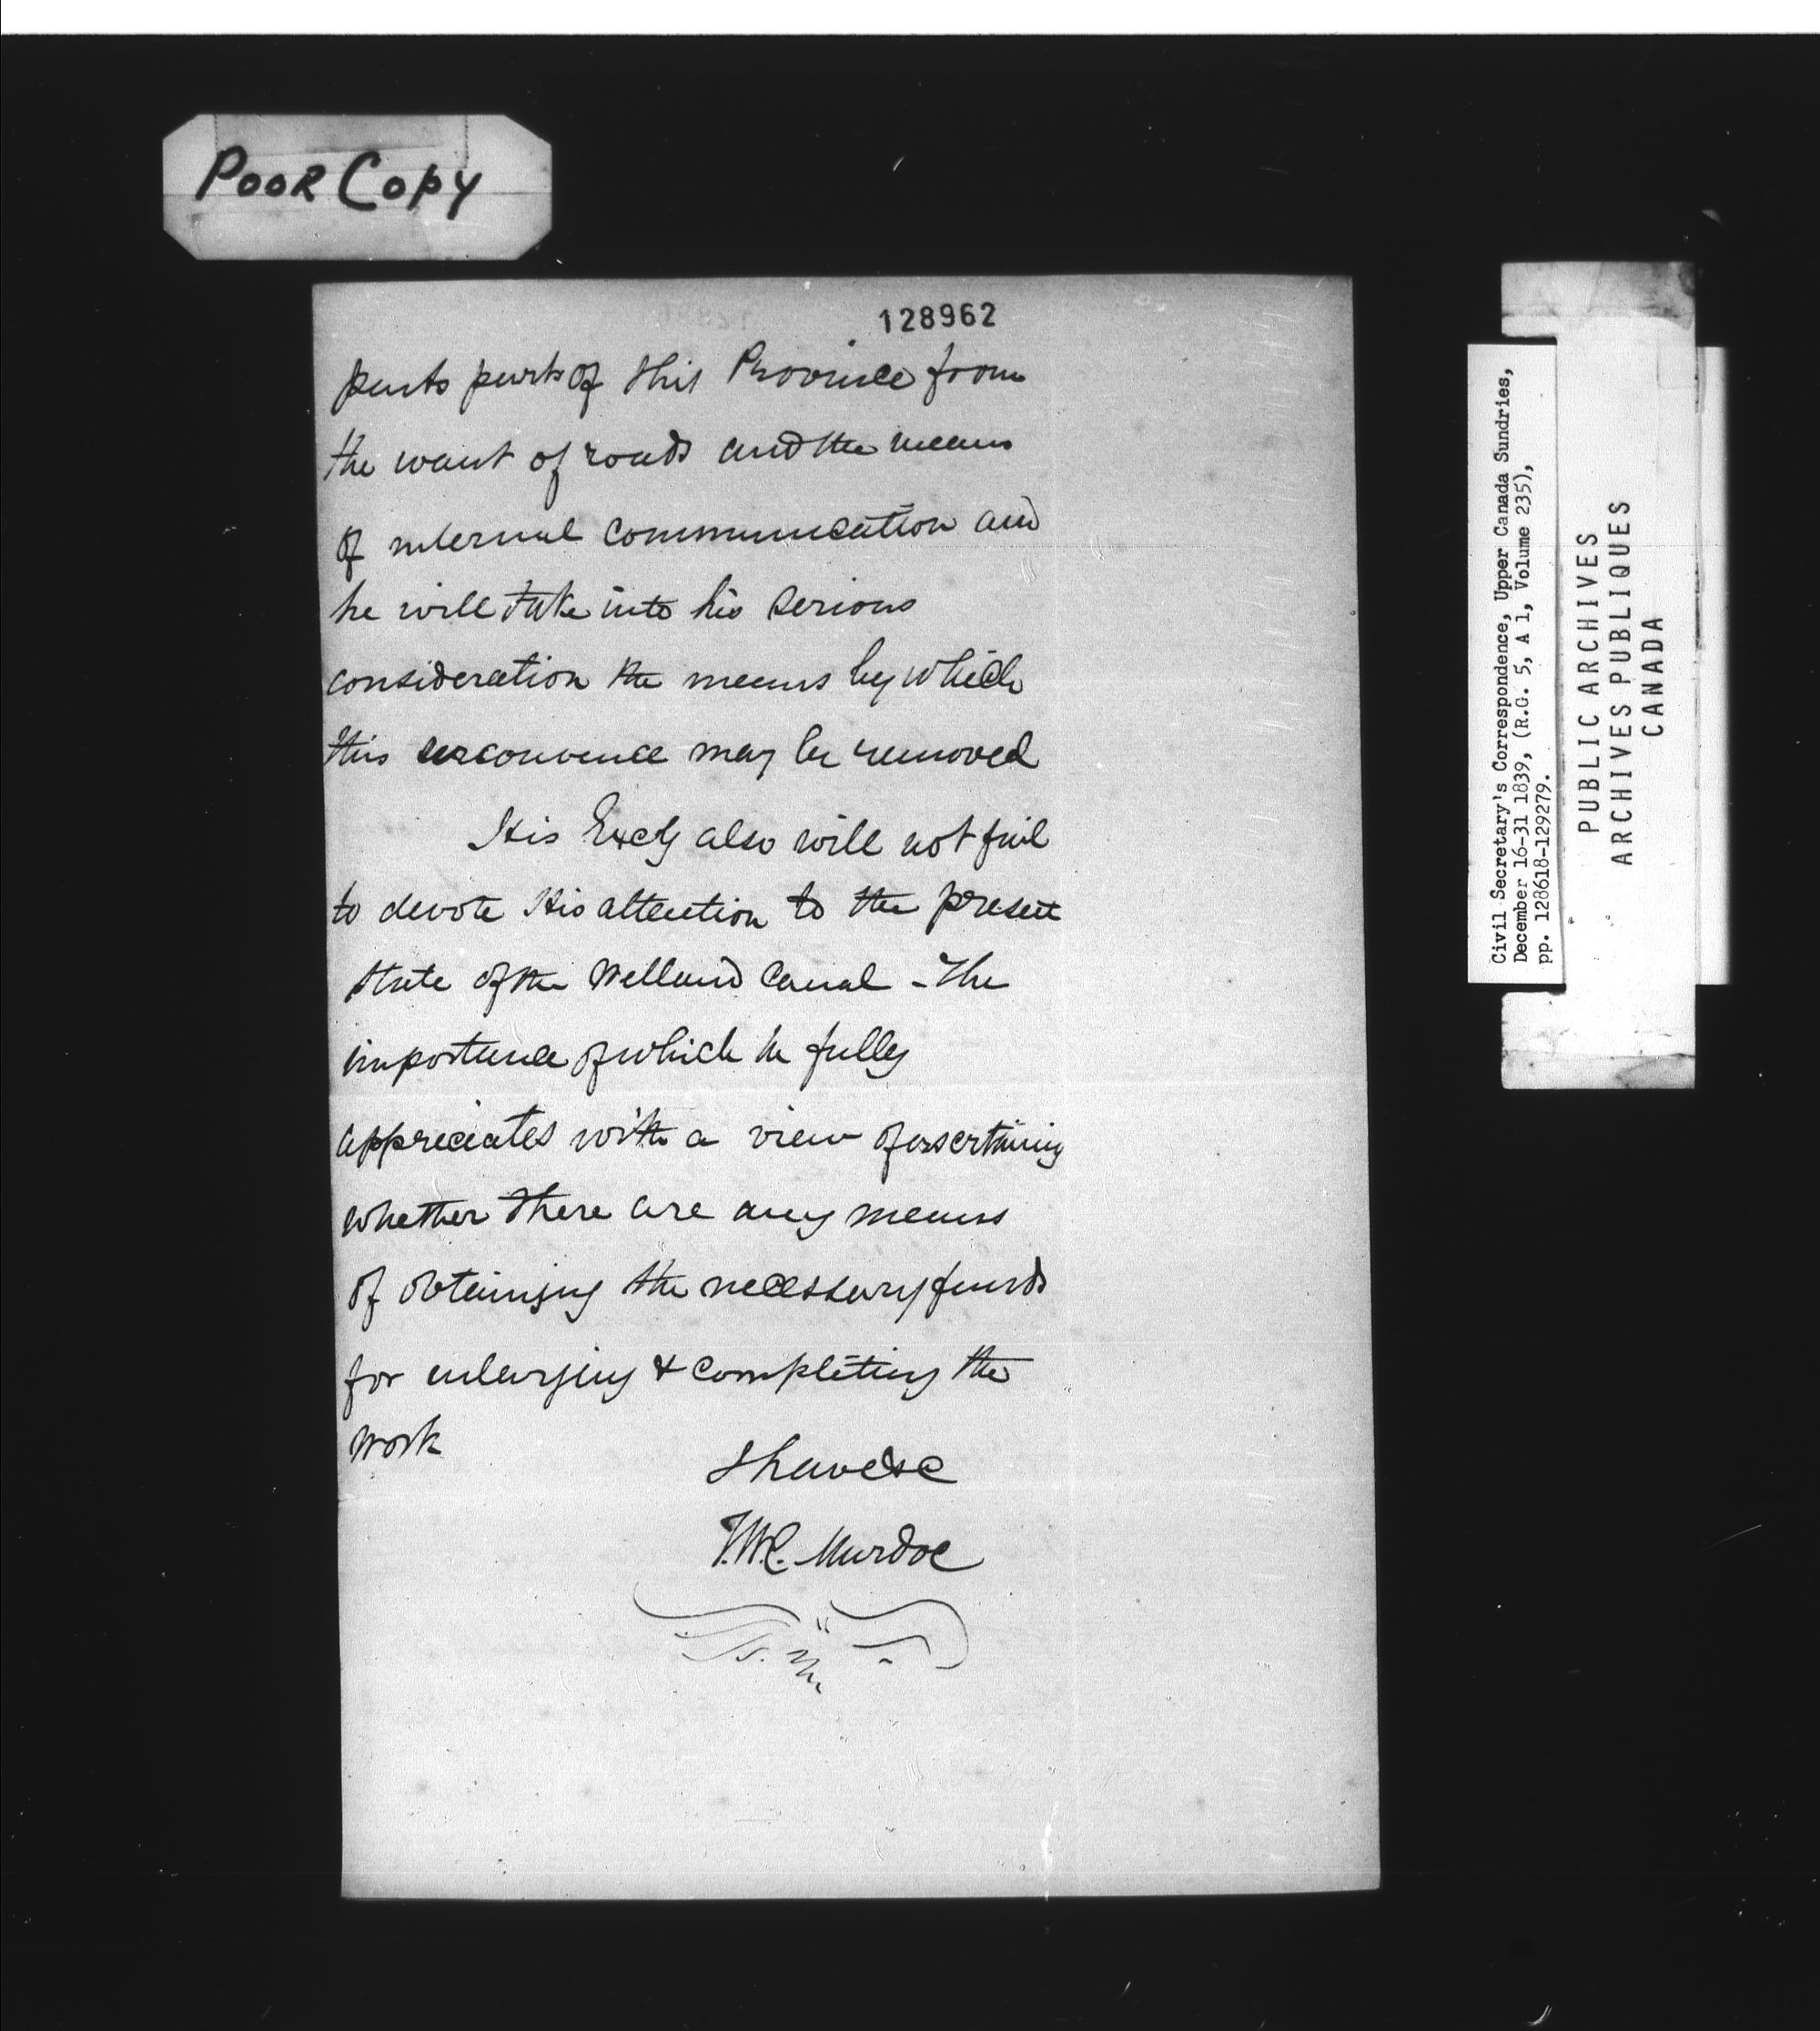 POOR COPY
128962
parts parts of this Province from
the want of roads and the means
of internal communication and
he will take into his serious
consideration the means by which
this may be removed
His Excy also will not fail
to devote His attention to the present
state of the Welland Canal - The
importance of which he fully
appreciates with a view of
whether there are any means
of obtaining the necessary funds
for enlarging & completing the
work
I have &c
T.W.C. Murdoc
Civil Secretary's Correspondence, Upper Canada Sundries,
December 16-31 1839, (R.G. 5, A 1, Volume 235),
pp. 128618-129279.
PUBLIC ARCHIVES
ARCHIVES PUBLIQUES
CANADA